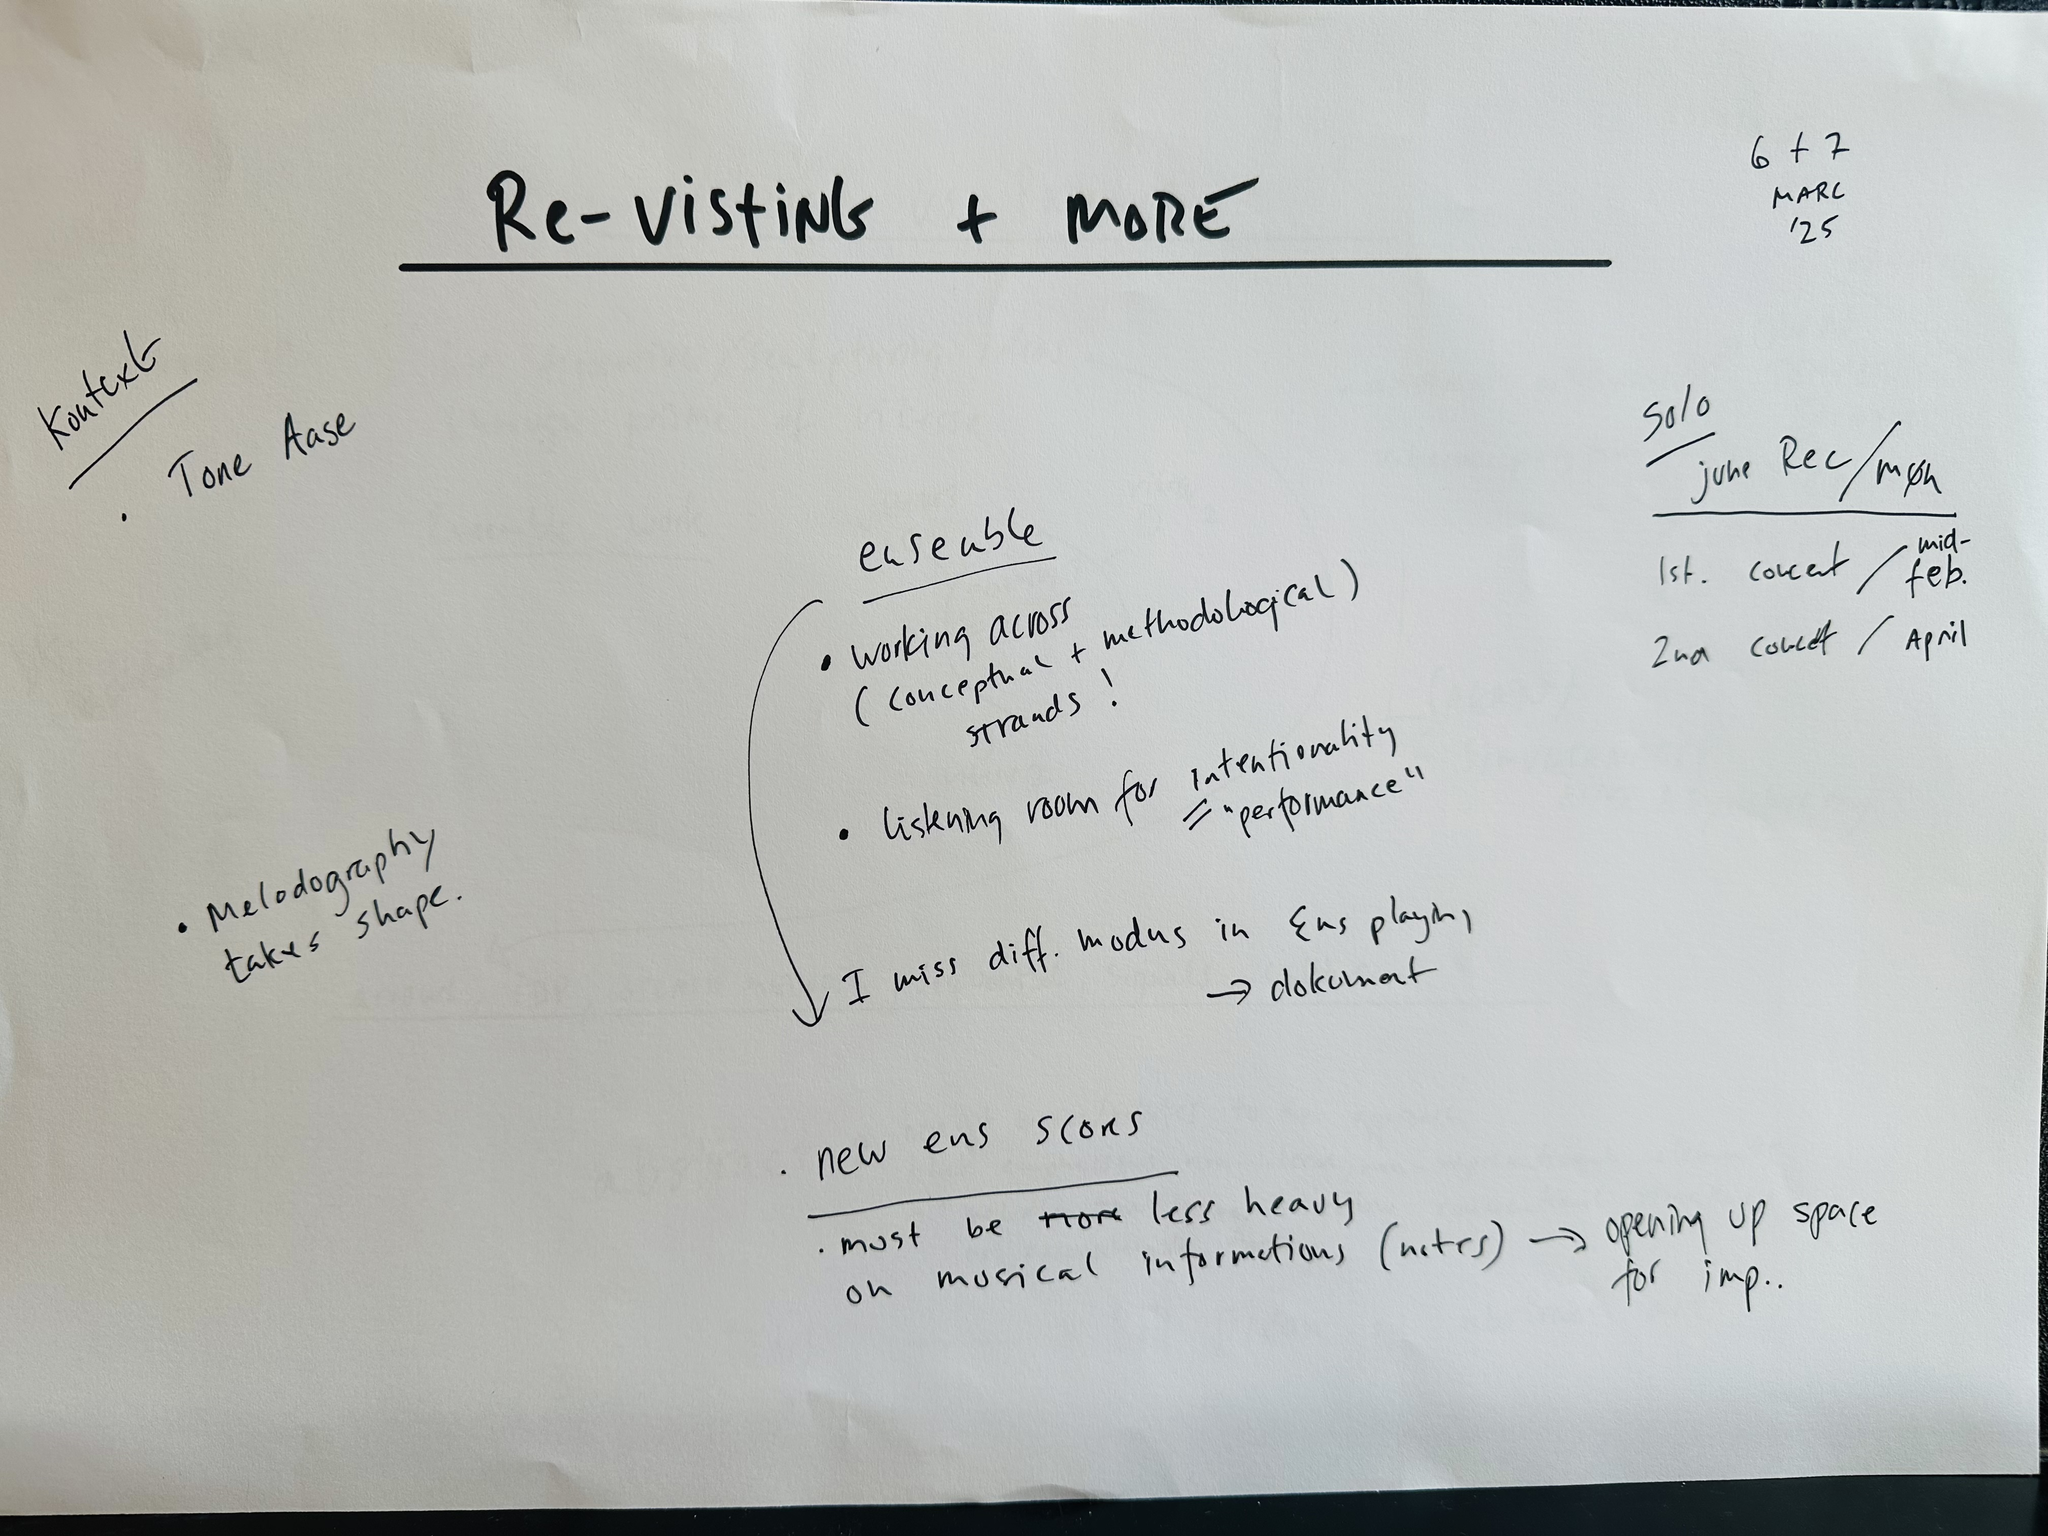 Re-visting + more
6 + 7
MARC
'25
Kontext
• Tone Aase
Solo
june Rec/møn
1st. concert / mid-feb.
2nd concert / April
ensemble
• working across
(conceptual + methodological)
strands!
• listening room for intentionality
= "performance"
I miss diff. modus in Ens playing
→ dokument
• Melodography
takes shape.
• new ens scores
• must be more less heavy
on musical informations (notes) → opening up space
for imp..